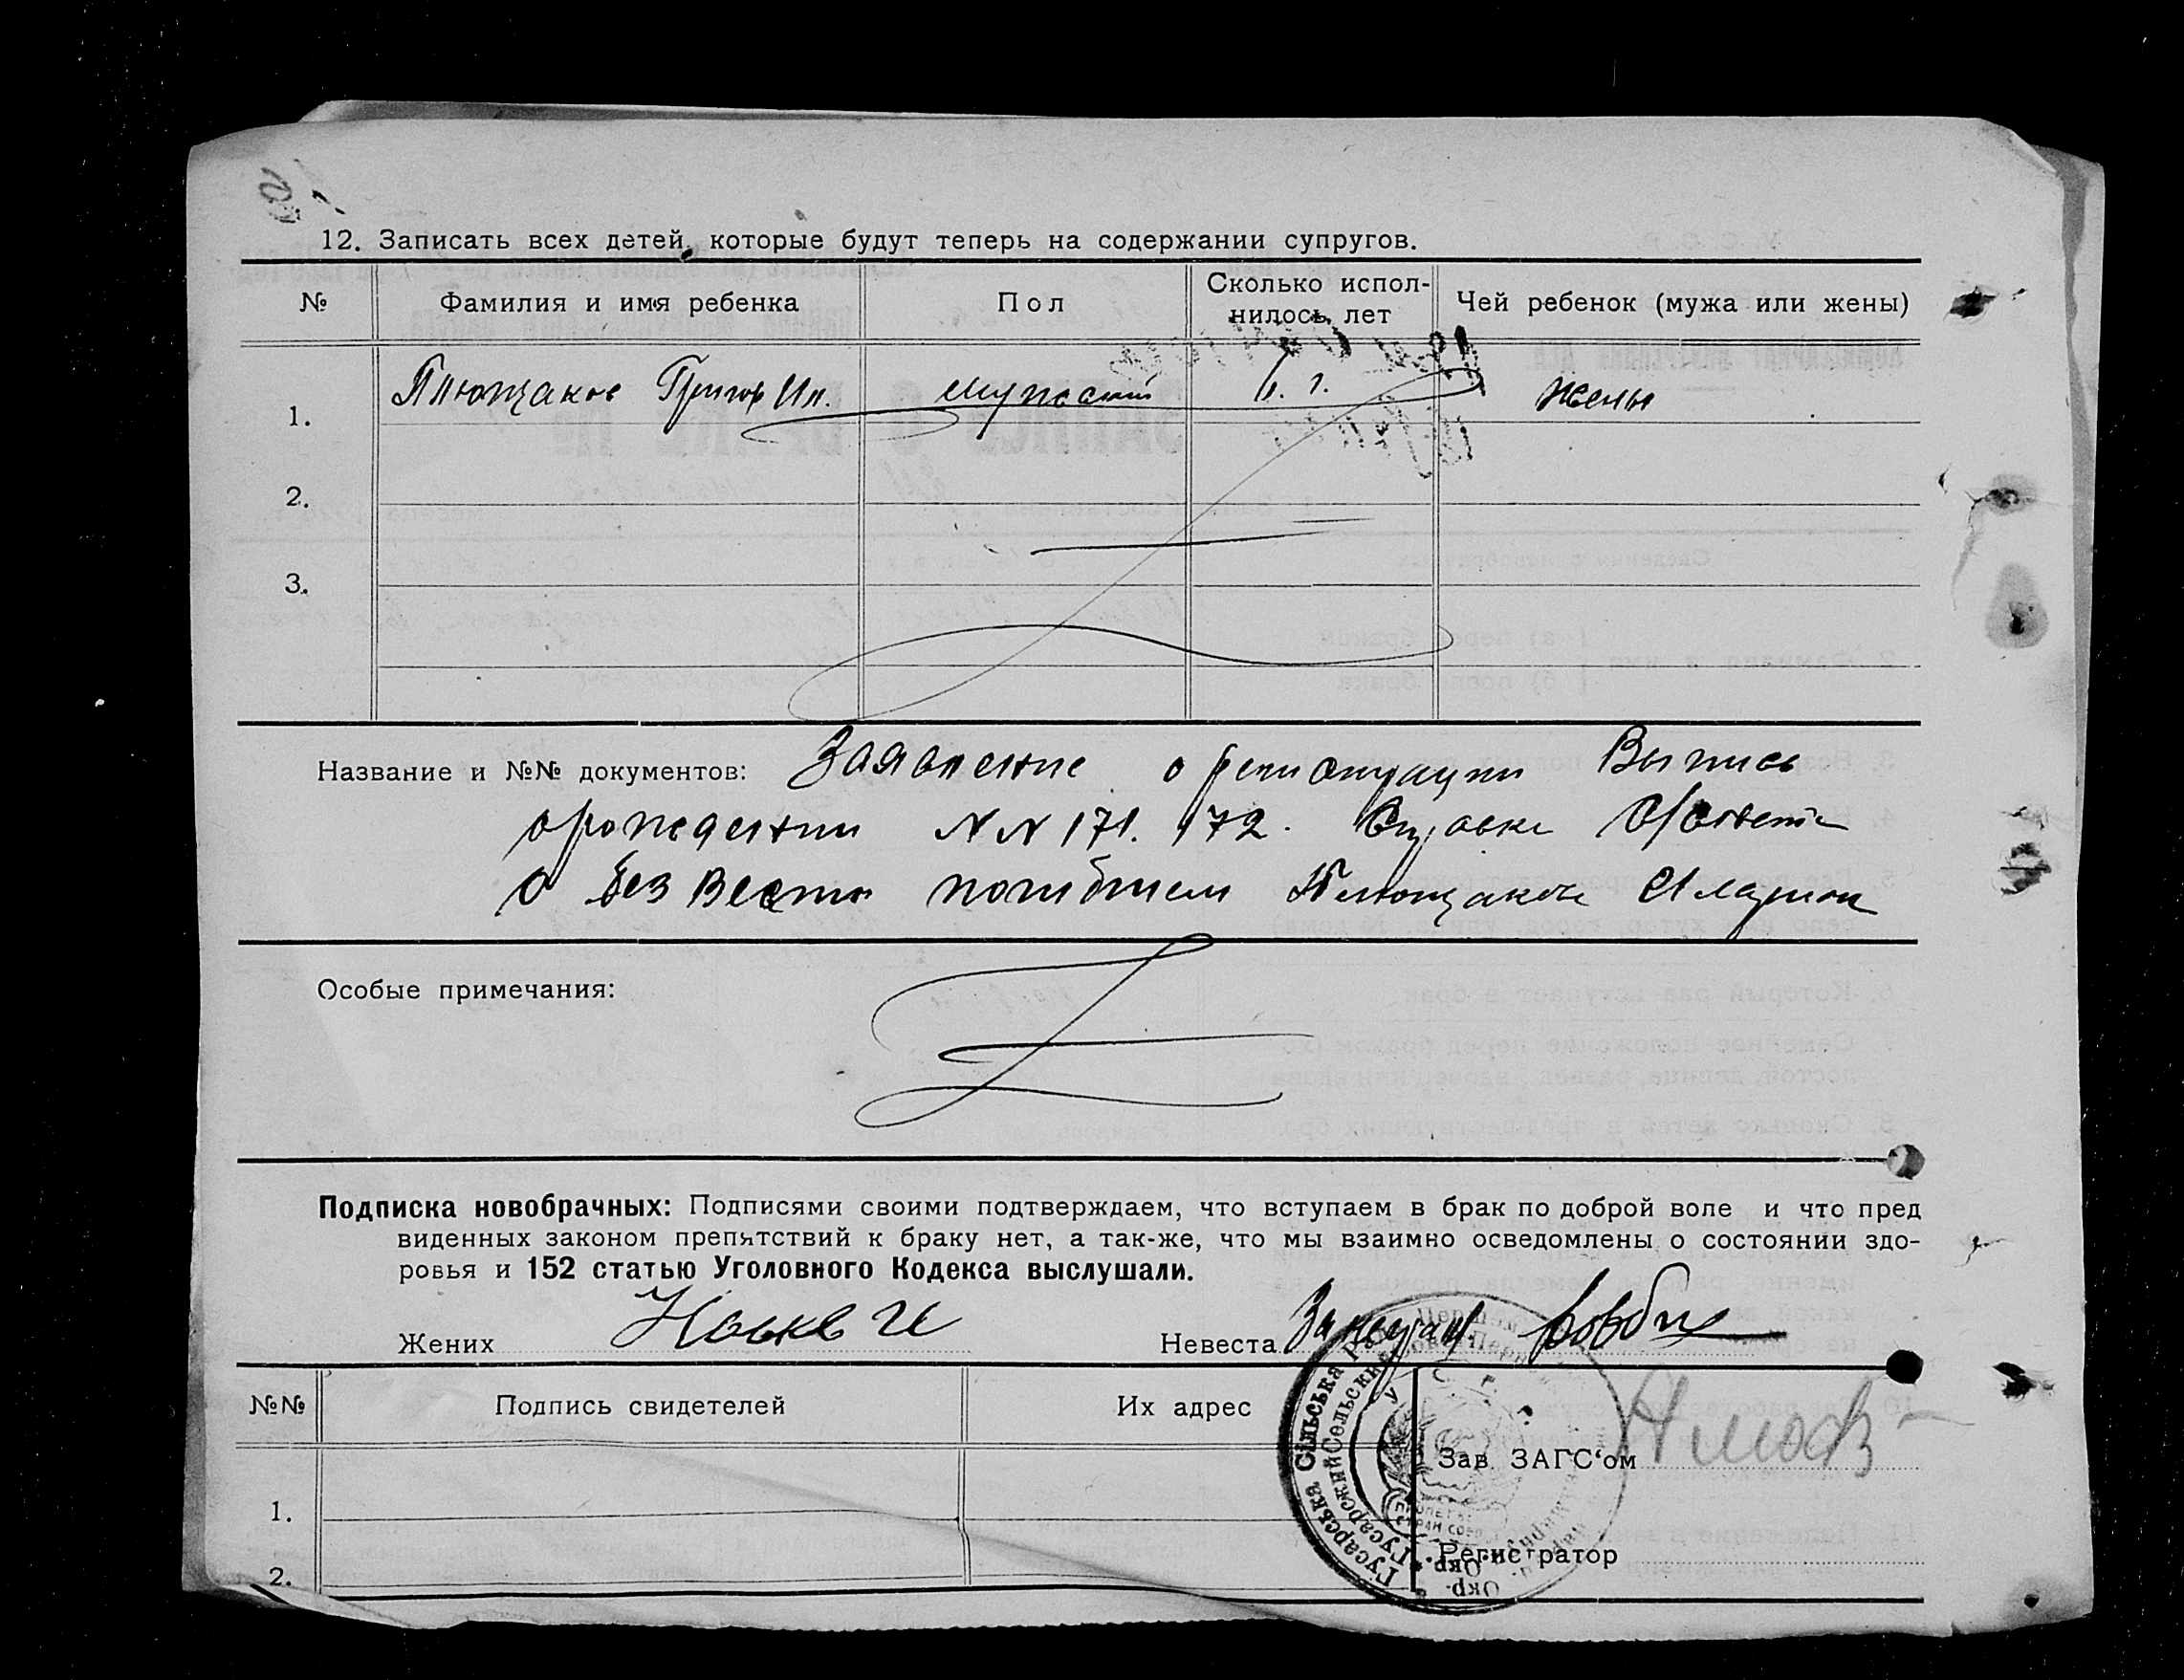 12. Записать всех детей, которые будут теперь на содержании супругов.
№ Фамилия и имя ребенка Пол Сколько испол-нилось лет Чей ребенок (мужа или жены)
1. Плющаков Григор Ил. мужской жены
2.
3.
Название и №№ документов: Заявление о регистрации Выпись
о рождении NN 171. 172. Справка С/Совета
о без вести погибшем Плющакове Иларион
Особые примечания:
Подписка новобрачных: Подписями своими подтверждаем, что вступаем в брак по доброй воле и что пред
виденных законом препятствий к браку нет, а так-же, что мы взаимно осведомлены о состоянии здо-
ровья и 152 статью Уголовного Кодекса выслушали.
Жених Невеста
№№ Подпись свидетелей Их адрес
Зав. ЗАГС'ом
1.
Регистратор
2.
Гусарська Сільська
Гусарский Сельский
Окр.
Окр.